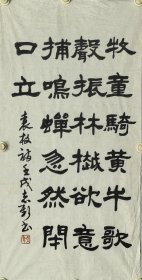 牧童騎黄牛歌
聲振林樾欲意
捕鳴蟬忽然閇
口立
袁枚詩壬戌